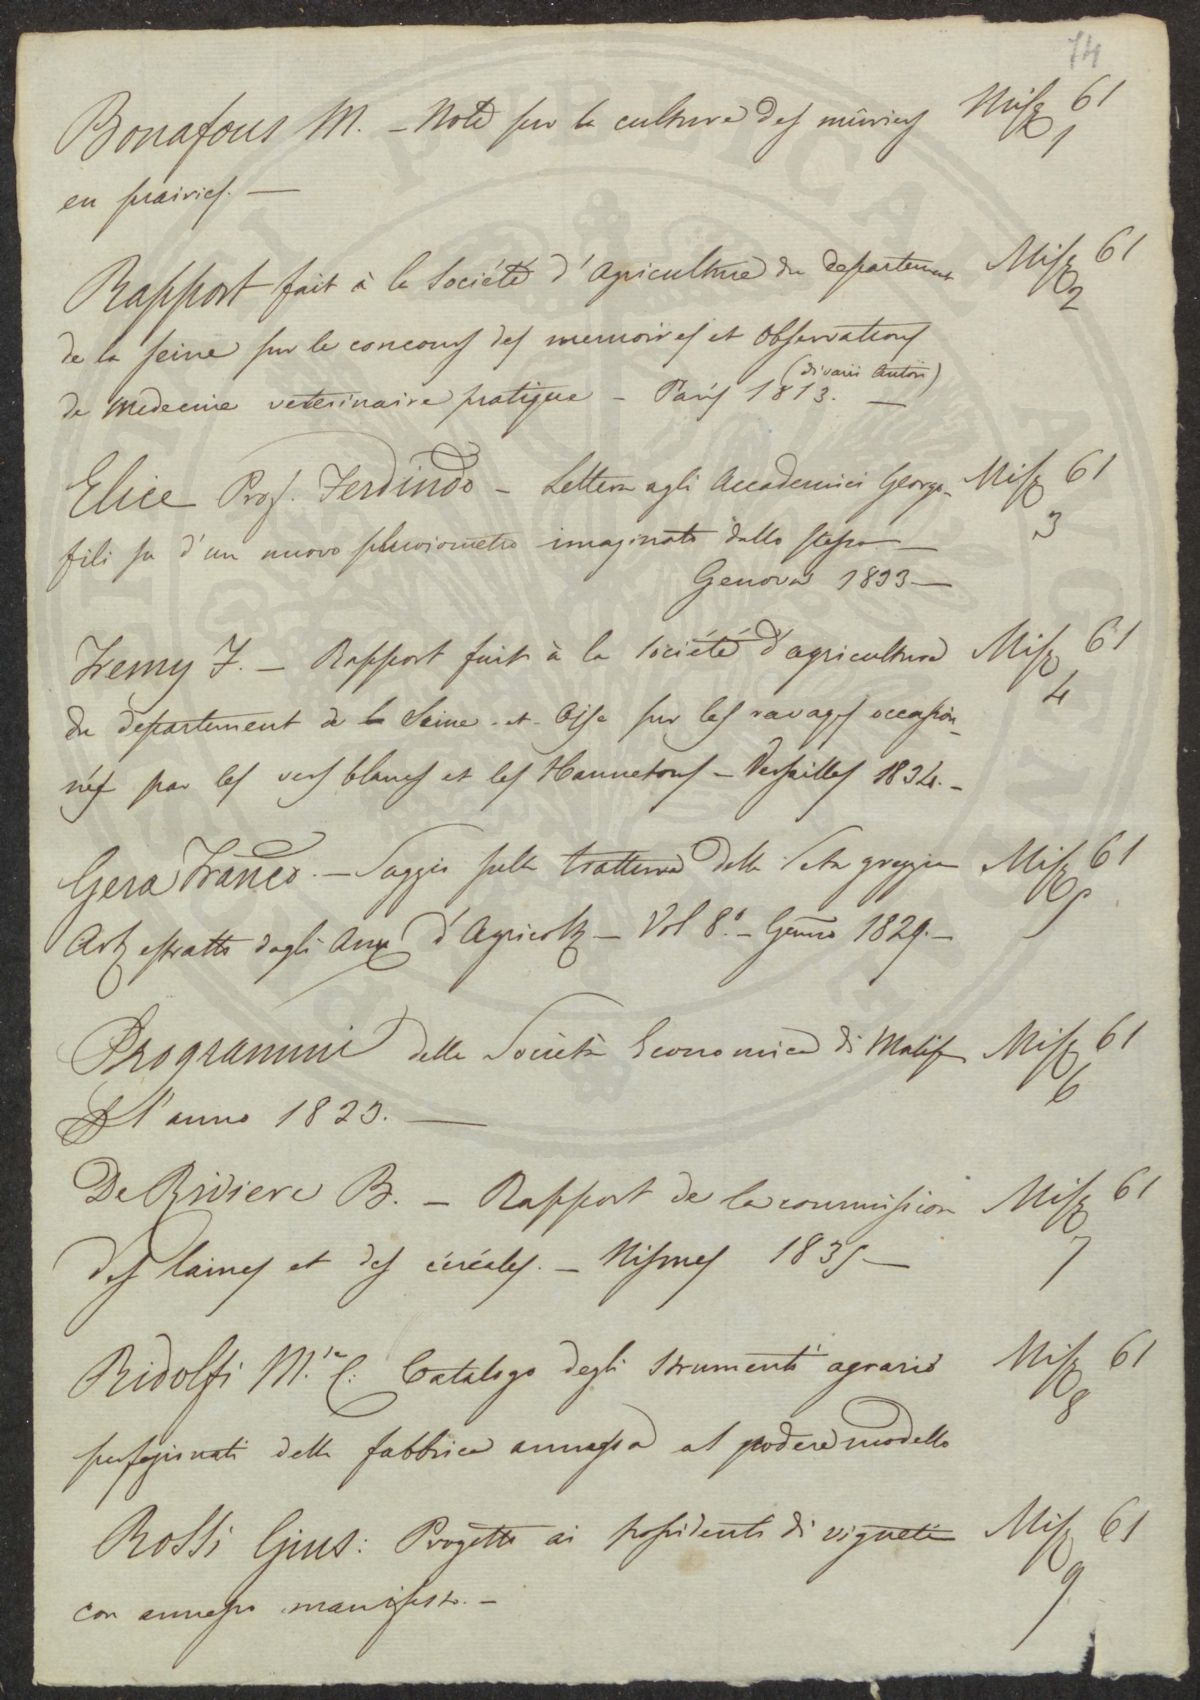 14
Bonafous M. - Note sur la culture des mûriers Misc 61
1
en prairies. —
Rapport fait à la Société d'Agriculture du departement Misc 61
2
de la seine sur le concours des memoires et Observations
(di varii Autori)
de medecine veterinaire pratique - Paris 1813. —
Elice Prof. Ferdindo - Lettera agli Accademici Georgo- Misc 61
3
fili su d'un nuovo pluviometro imaginato dallo stesso —
Genova 1833 —
Fremy F. - Rapport fait à la Société d'agriculture Misc 61
4
du departement de la Seine-et-Oise sur les ravages occasion-
nés par les vers blancs et les Hannetons - Versailles 1834. -
Gera Franco. - Saggio sulla trattura della seta greggia Misc 61
5
Art estratto dagli Ann d'Agricolt - Vol 8.° - Genno 1829. -
Programmi della Società Economica di Misc 61
6
l'anno 1823. —
De Riviere B. - Rapport de la commission Misc 61
7
des laines et des céréales. - Nismes 1835 —
Ridolfi M.se C: Catalogo degli strumenti agrarii Misc 61
8
perfezionati della fabbrica annessa al podere modello
Rossi Gius: Progetto ai possidenti di vigneti Misc 61
9
con annesso manifesto. -